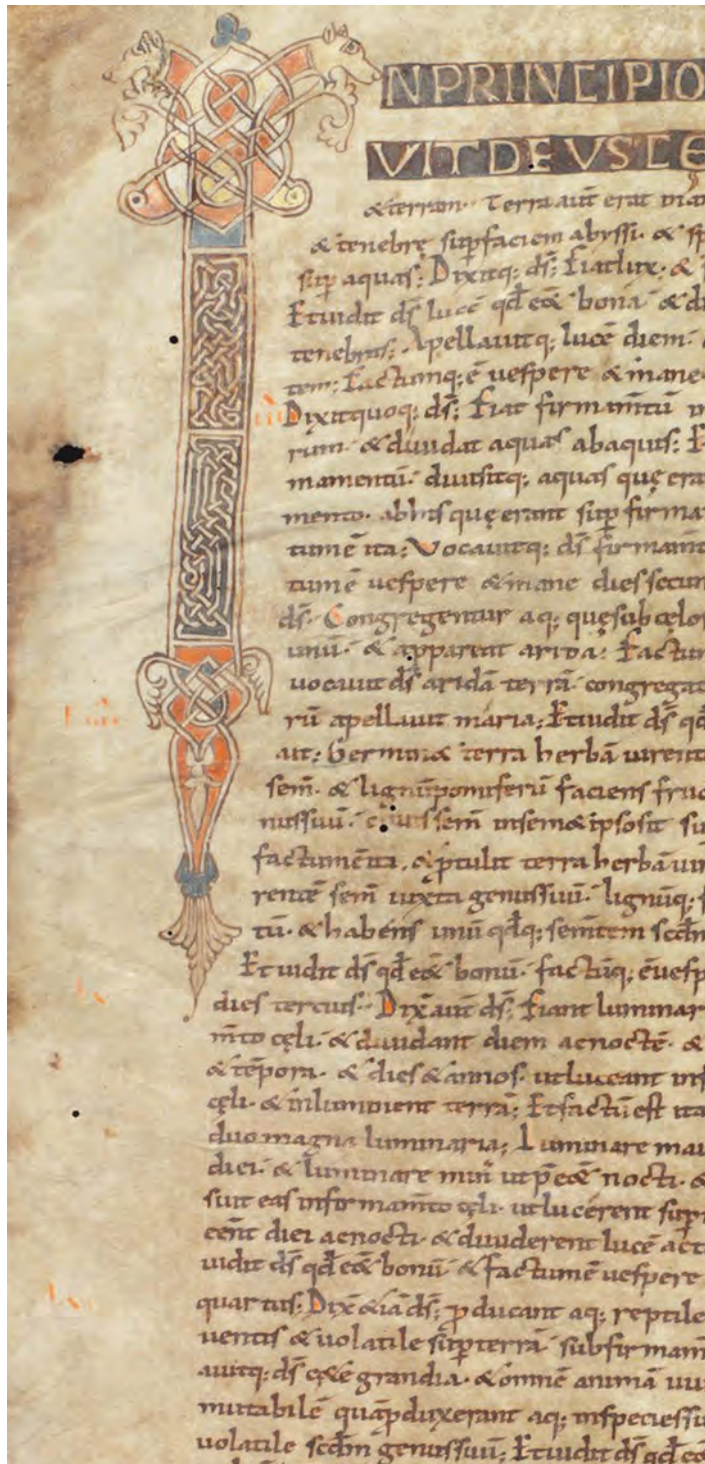 N PRINCIPIO
VIT DEVS CE
& terram. Terra aut̄ erat
& tenebrę sup faciem abyssi. & sp
sup aquas; Dixitq; d̄s; Fiat lux. &
Et uidit d̄s lucē qđ eēt bona. & di
tenebras; Apellauitq; lucē diem.
tem; Factumq; ē uespere & mane
Dixit quoq; d̄s; Fiat firmam̄tū
rum. & diuidat aquas ab aquis; E
mamentū. diuisitq; aquas quę era
mento. ab his quę erant sup firma
tum ē ita; Vocauitq; d̄s firmam̄t
tum ē uespere & mane dies secun
d̄s. Congregentur aq; quę sub cęlo
unū. & appareat arida; Factum
uocauit d̄s aridā terrā congregat
rū apellauit maria; Et uidit d̄s qđ
ait; Germinet terra herbā uirent
sem̄. & lignū pomiferū faciens fruc
nus suū. cuius sem̄ in semet ipso sit su
factum ē ita. & ptulit terra herbā ui
rentē sem̄ iuxta genus suū. lignūq;
tū. & habens unū qđq; sem̄tem scđm
Et uidit d̄s qđ eēt bonū. factūq; ē uesp
dies tercius. Dix̄ aut̄ d̄s; Fiant luminar
m̄to cęli. & diuidant diem ac noctē. &
& tēpora. & dies & annos. ut luceant in f
cęli. & inluminent terrā; Et factū est ita
duo magna luminaria; Luminare mai
diei. & luminare min̄ ut p̄eēt nocti. &
suit eas in firmam̄to cęli. ut lucerent sup
cēnt diei ac nocti. & diuiderent lucē ac t
uidit d̄s qđ eēt bonū. & factum ē uespere
quartus; Dix̄ &iā d̄s; pducant aq; reptile
uentis & uolatile sup terrā sub firmam̄
auitq; d̄s cęte grandia. & omnē animā uiu
mutabilē quā pduxerant aq; in species su
uolatile scđm genus suū; Et uidit d̄s qđ eē